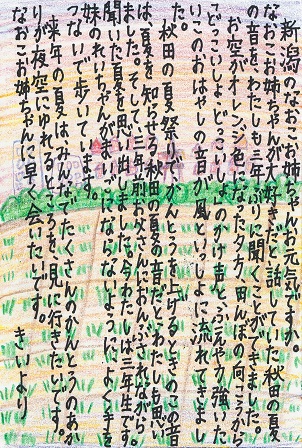 新潟のなおこお姉ちゃんお元気ですか。
なおこお姉ちゃんが大好きだと話していた秋田の夏
の音を、わたしも三年ぶりに聞くことができました。
お空がオレンジ色になった夕方、田んぼの向こうから
「どっこいしょーどっこいしょ」のかけ声と、ふえや力強いた
いこのおはやしの音が、風といっしょに流れてきまし
た。
秋田の夏祭りで、かんとうを上げるときのこの音
は、夏を知らせる、秋田の夏の音だとわたしも思い
ました。そして、三年前お父さんにおんぶされながら、
聞いた夏を思い出しました。今わたしは三年生です。
妹のれいちゃんがまいごにならないように、よく手を
つないで歩いています。
来年の夏はみんなでたくさんのかんとうのあか
りが夜空にゆれるところを、見に行きたいです。
なおこお姉ちゃんに早く会いたいです。
きいより